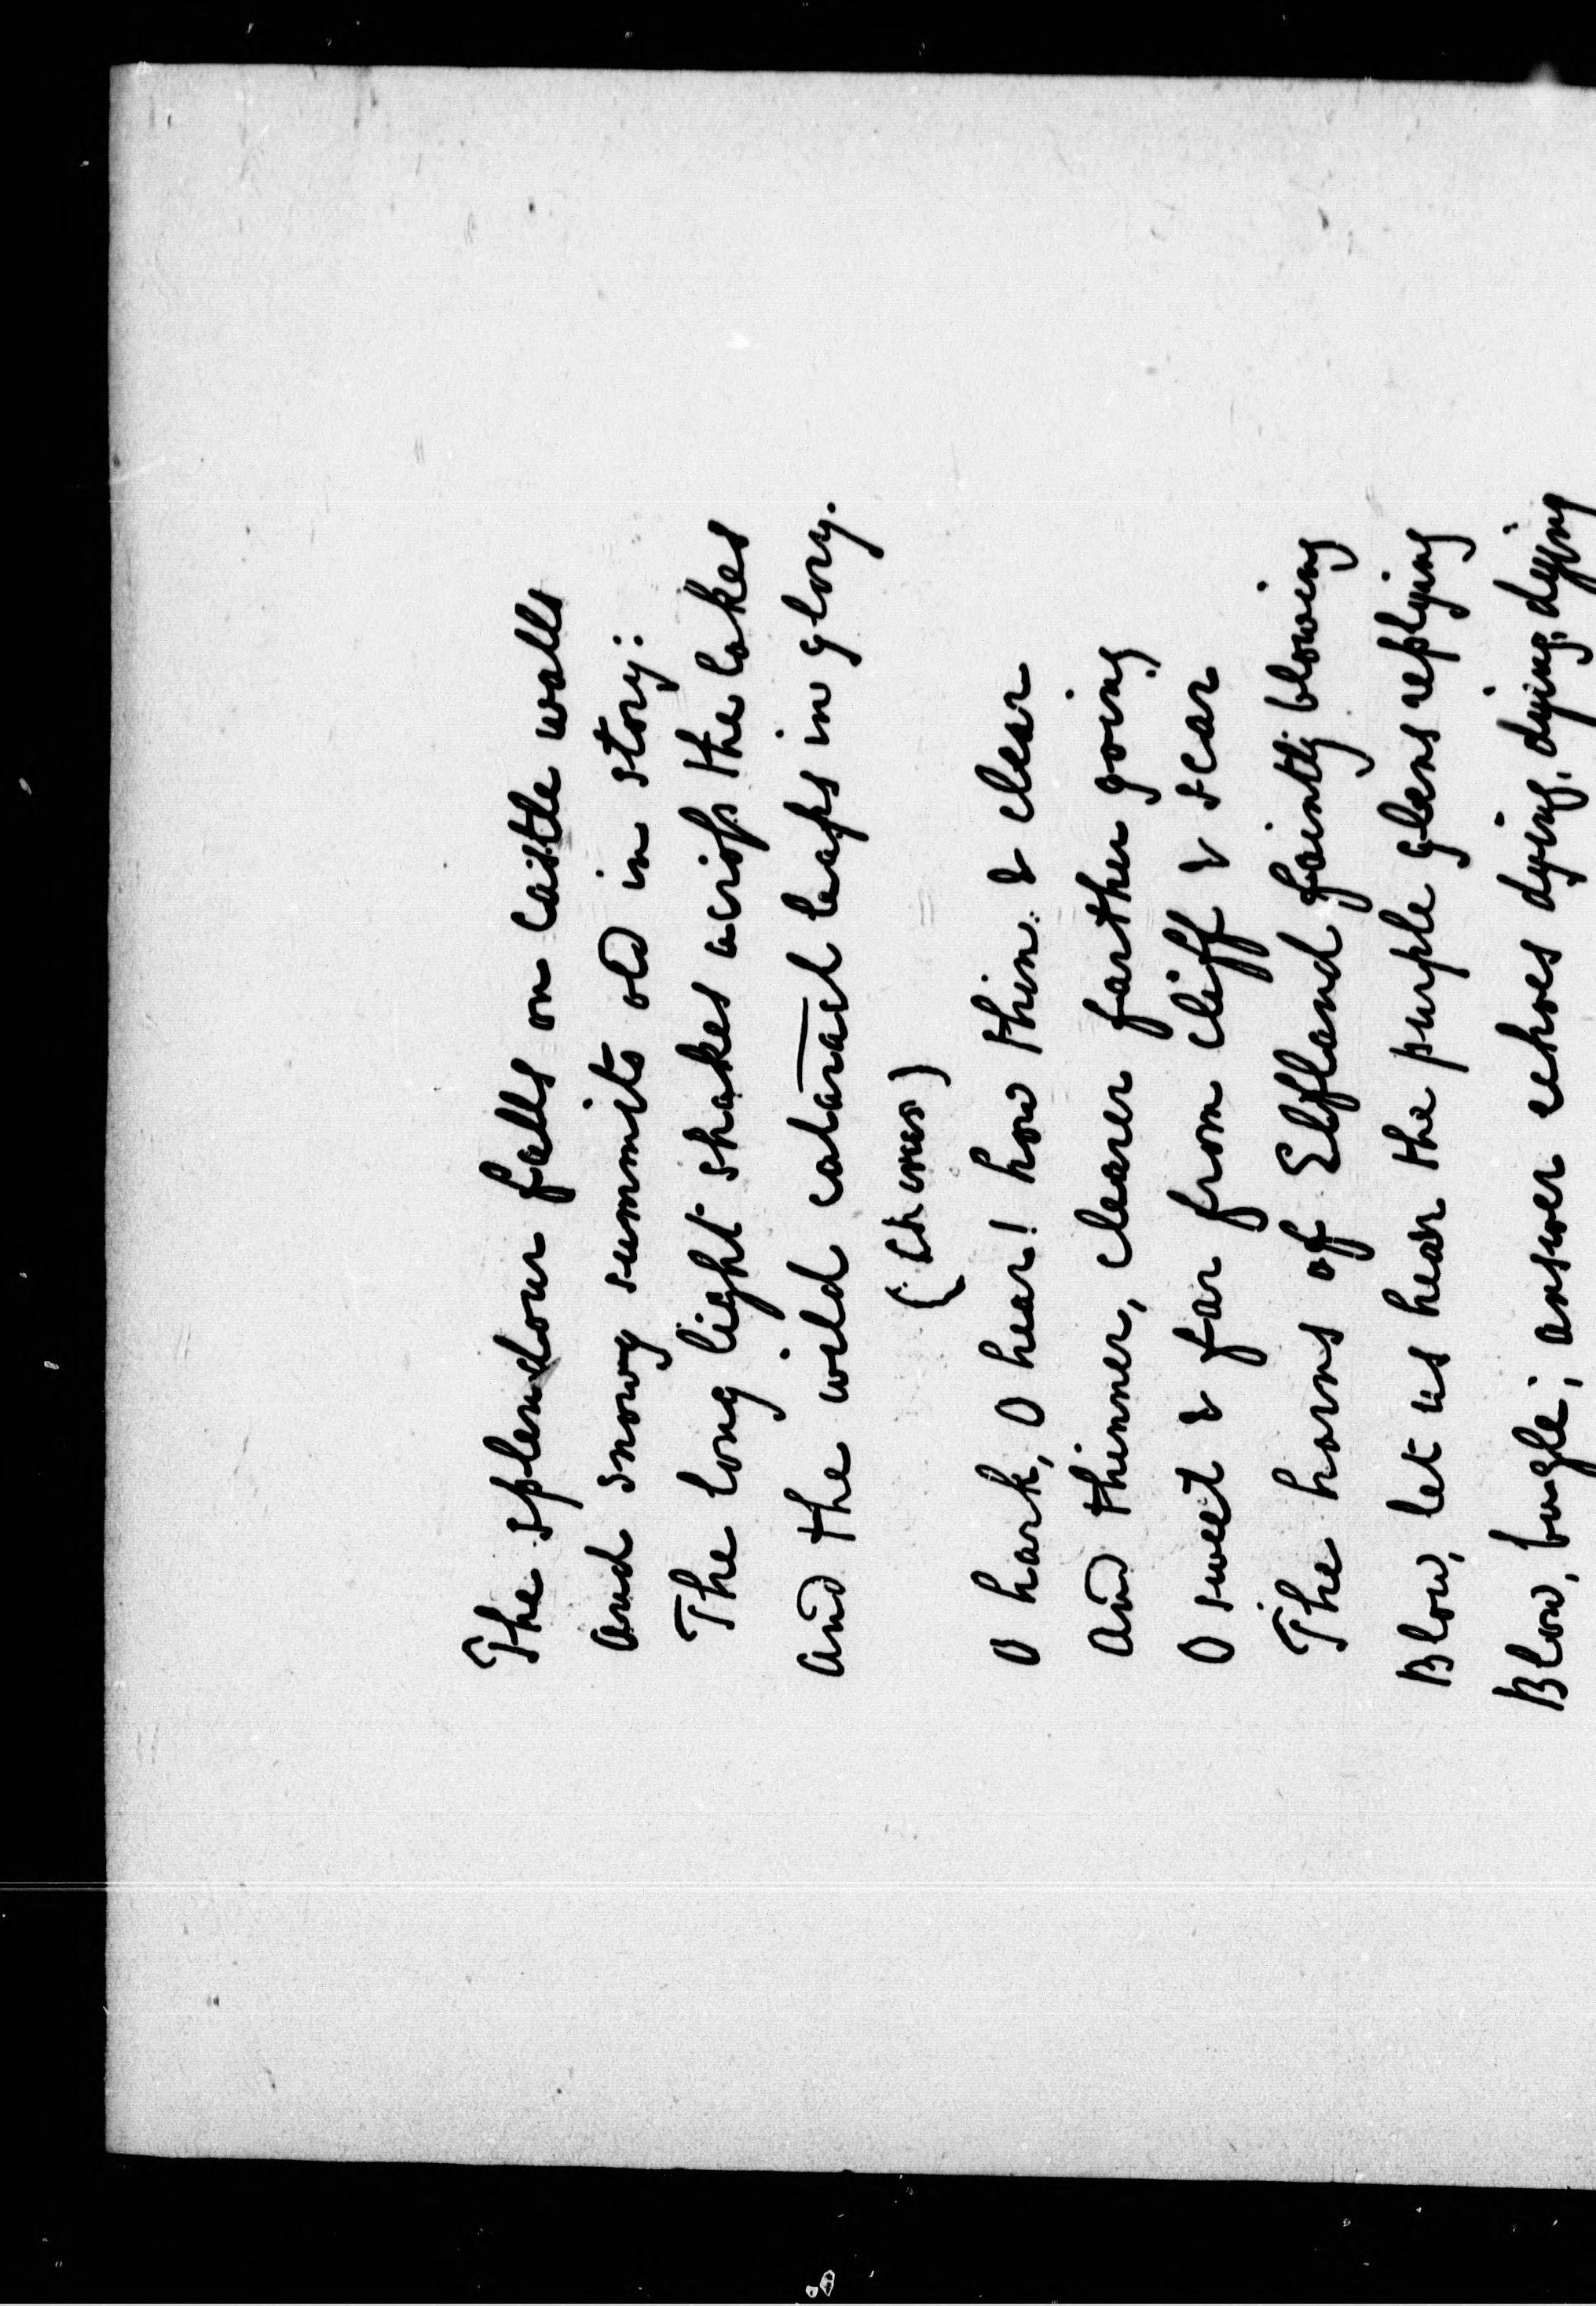 The splendour falls on castle walls
and snowy summits old in story:
The long light shakes across the lakes
and the wild cataract leaps in glory.
(Chorus)
O hark, O hear! how thin & clear
and thinner, clearer farther going
O sweet & far from cliff & scar
The horns of Elfland faintly blowing
Blow, let us hear the purple glens replying
Blow, bugle; answer echoes dying, dying, dying